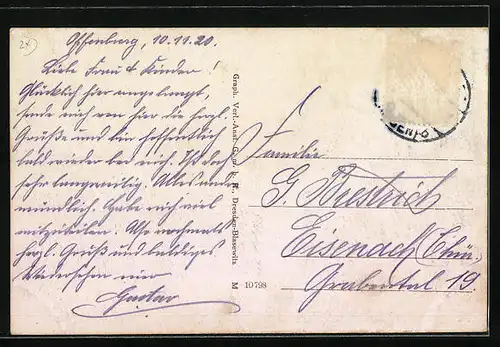 Offenburg, 10.11.20.
Liebe Frau & Kinder!
Glücklich hier angelangt,
sende euch von hier die herzl.
Grüße und bin hoffentlich
bald wieder bei euch. Ist doch
sehr langweilig. Alles andere
mündlich. Habe euch viel
mitzuteilen. Also nochmals
herzl. Gruß und baldiges
Wiedersehen euer
Gustav
Graph. Verl.-Anst. G. m. b. H., Dresden-Blasewitz
M 10798
Familie
G. Brestrich
Eisenach (Thür.
Grabental 19